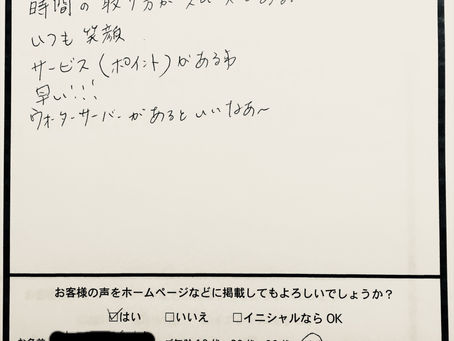 時間の取り方がスムーズである。
いつも笑顔
サービス(ポイント)がある
早い!!!
ウォーターサーバーがあるといいなあ〜
お客様の声をホームページなどに掲載してもよろしいでしょうか?
☑はい □いいえ □イニシャルなら OK
お名前